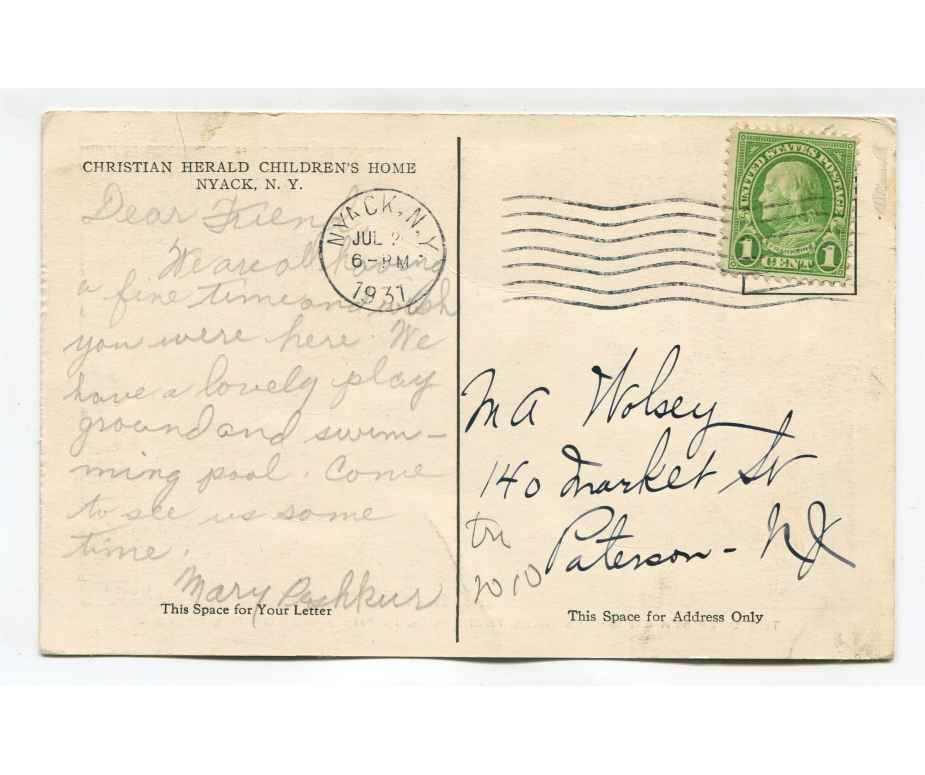 CHRISTIAN HERALD CHILDREN'S HOME
NYACK, N. Y.
Dear Friend
We are all having
a fine time and wish
you were here. We
have a lovely play
ground and swim-
ming pool. Come
to see us some
time.
Mary
This Space for Your Letter
NYACK, N.Y.
JUL 2
6-PM
1931
UNITED STATES POSTAGE
FRANKLIN
1 CENT 1
M A Wolsey
140 Market St
Paterson - NJ
This Space for Address Only